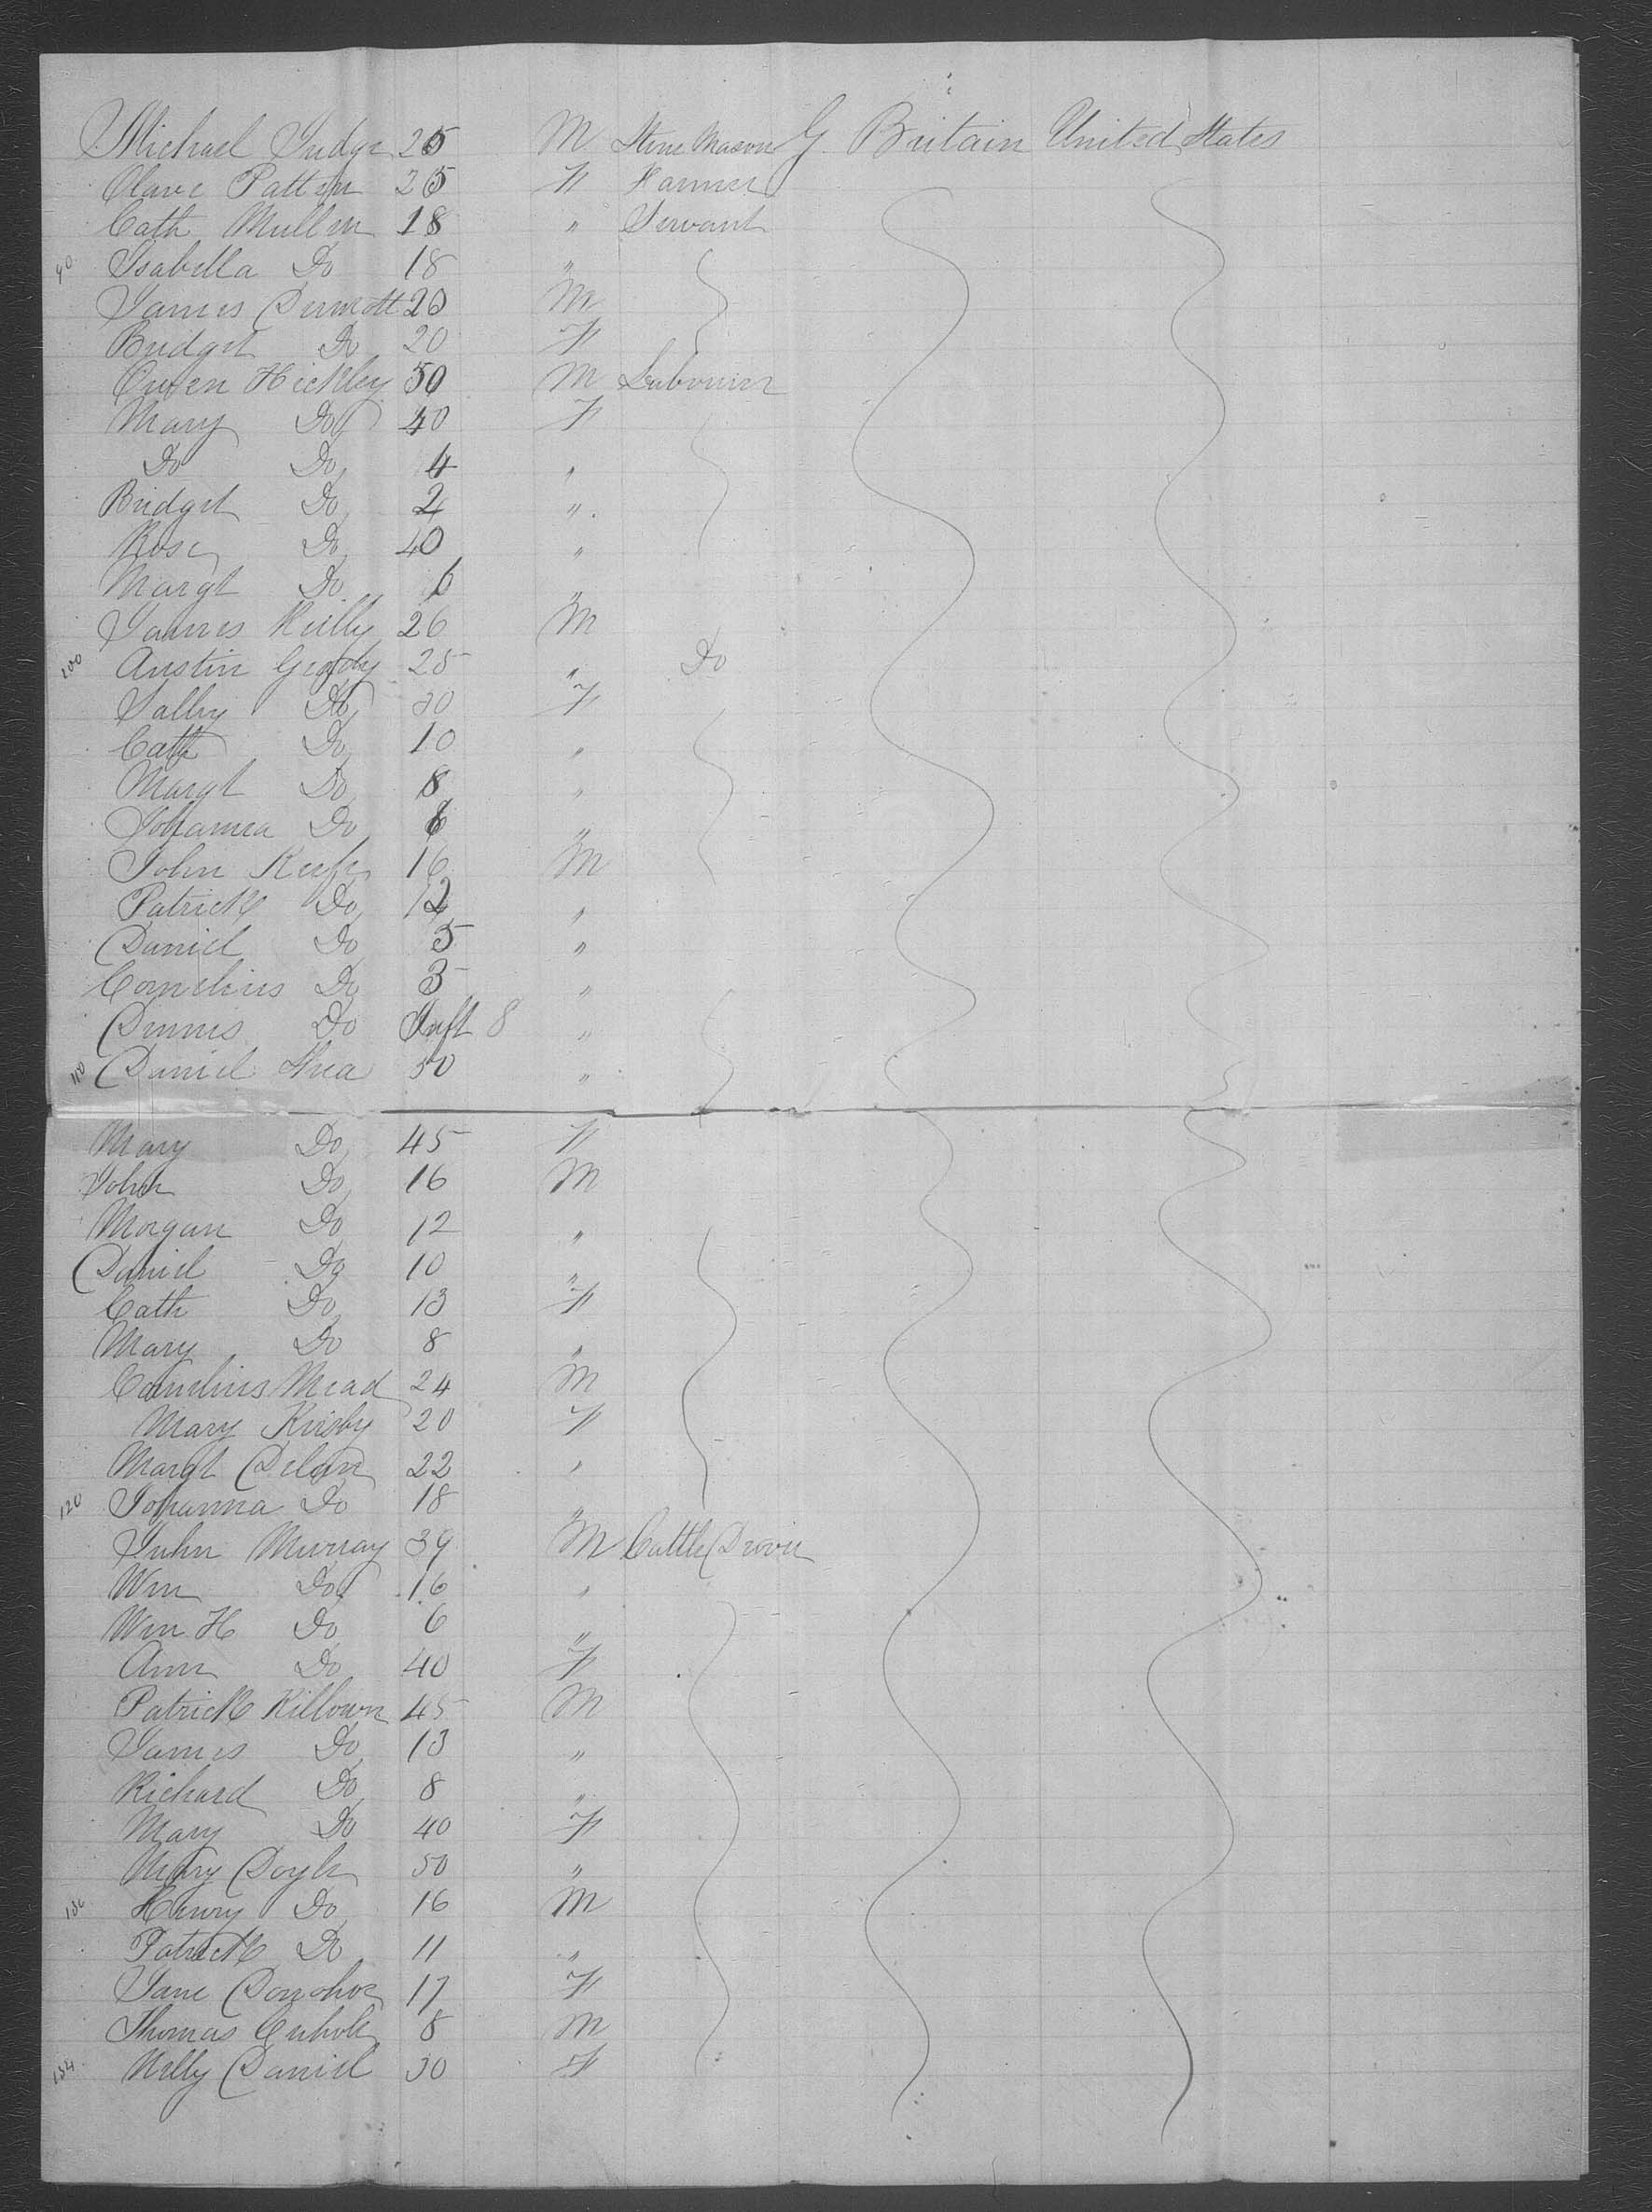 Michael Judge 25 M Stone Mason G. Britain United States
Clare Patten 25 F Farmer
Cath Mullen 18 " Servant
90 Isabella Do 18 "
James Dermott 20 M
Bridget Do 20 F
Owen Hickley 50 M Labourer
Mary Do 40 F
Do Do 4 "
Bridget Do 2 "
Rose Do 40 "
Margt Do 6 "
James Kielly 26 M
100 Austin Grady 25 " Do
Sally Do 30 F
Cath Do 10 "
Margt Do 8 "
Johanna Do 6 "
John Keefe 16 M
Patrick Do 12 "
Daniel Do 5 "
Cornelius Do 3 "
Dennis Do Inft 8 "
110 Daniel Shea 50 "
Mary Do 45 F
John Do 16 M
Morgan Do 12 "
Daniel Do 10 "
Cath Do 13 F
Mary Do 8 "
Cornelius Mead 24 M
Mary Kirsby 20 F
Margt Delan 22 "
120 Johanna Do 18 "
John Murray 39 M Cattle Drover
Wm Do 16 "
Wm H Do 6 "
Ann Do 40 F
Patrick Killown 45 M
James Do 13 "
Richard Do 8 "
Mary Do 40 F
Mary Doyle 50 "
130 Henry Do 16 M
Patrick Do 11 "
Jane Donohoe 17 F
Thomas 8 M
134 Nelly Daniel 30 F